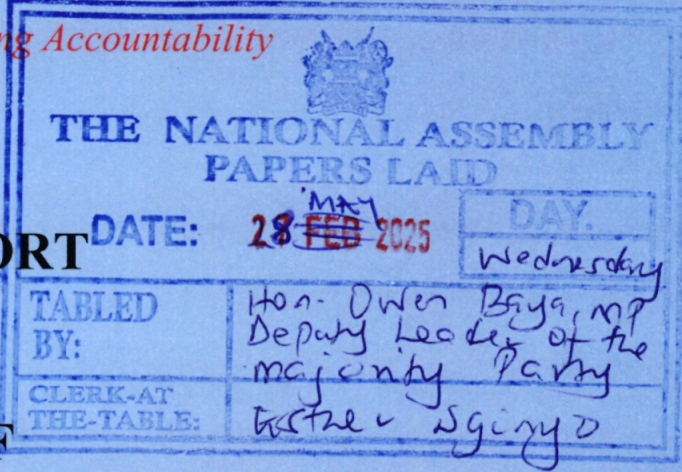 ng Accountability
THE NATIONAL ASSEMBLY
PAPERS LAID
MAY
DATE: 28 FEB 2025
DAY.
Wednesday
ORT
TABLED BY:
Hon. Owen Baya, MP
Deputy Leader of the
majority Party
CLERK-AT
THE-TABLE:
Esther Nginyo
F